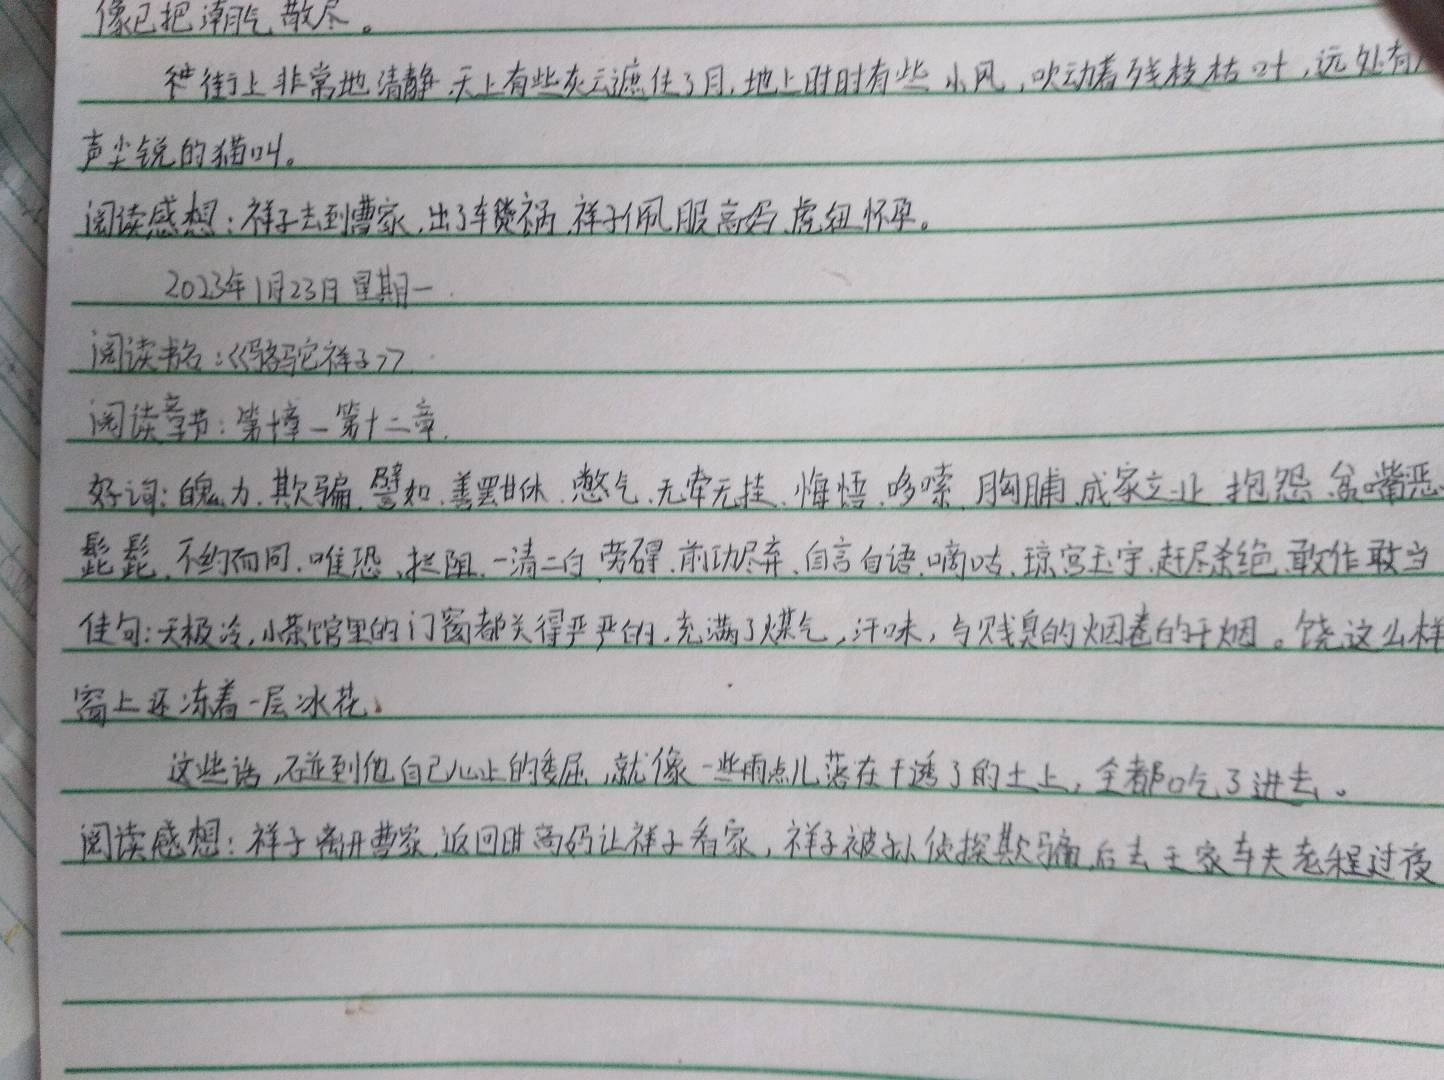 像已把潮气散尽。
街上非常地清静 天上有些灰云遮住了月,地上时时有些小风,吹动着残枝枯叶,远处有
声尖锐的猫叫。
阅读感想:祥子去到曹家,出了车祸,祥子佩服高妈,虎妞怀孕。
2023年1月23日 星期一.
阅读书名:《骆驼祥子》
阅读章节:第十章—第十二章.
好词:魄力、欺骗、譬如、善罢甘休、憋气、无牵无挂、悔悟、哆嗦、胸脯、成家立业 抱怨、
髭髭、不约而同、唯恐、拦阻、一清二白、旁碍、前功尽弃、自言自语、嘀咕、琼宫玉宇、赶尽杀绝、敢作敢当
佳句:天极冷,小茶馆里的门窗都关得严严的,充满了煤气,汗味,与贱臭的烟卷的干烟。饶这么样
窗上还冻着一层冰花。
这些话,碰到他自己心上的委屈,就像一些雨点儿落在干透了的土上,全都吃了进去。
阅读感想:祥子离开曹家,返回时高妈让祥子看家,祥子被孙侦探欺骗,后去王家车夫老程过夜